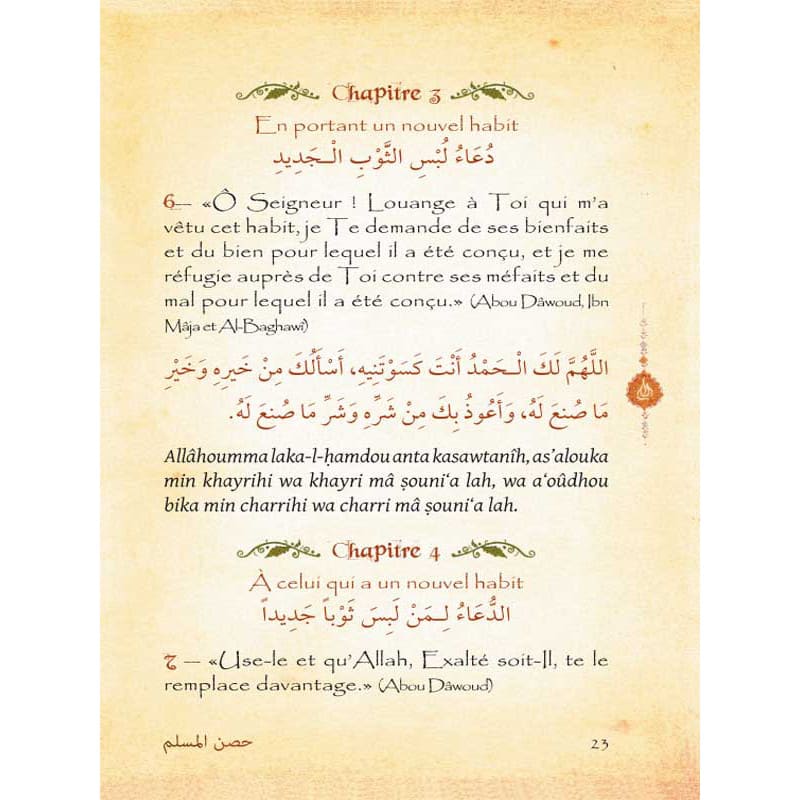 Chapitre 3
En portant un nouvel habit
دُعَاءُ لُبْسِ الثَّوْبِ الْـجَدِيدِ
6— «Ô Seigneur ! Louange à Toi qui m'a
vêtu cet habit, je Te demande de ses bienfaits
et du bien pour lequel il a été conçu, et je me
réfugie auprès de Toi contre ses méfaits et du
mal pour lequel il a été conçu.» (Abou Dâwoud, Ibn
Mâja et Al-Baghawî)
اللَّهُمَّ لَكَ الْـحَمْدُ أَنْتَ كَسَوْتَنِيهِ، أَسْأَلُكَ مِنْ خَيرِهِ وَخَيْرِ
مَا صُنعَ لَهُ، وَأَعُوذُ بِكَ مِنْ شَرِّهِ وَشَرِّ مَا صُنعَ لَهُ.
Allâhoumma laka-l-ḥamdou anta kasawtanîh, as'alouka
min khayrihi wa khayri mâ ṣouni‘a lah, wa a‘oûdhou
bika min charrihi wa charri mâ ṣouni‘a lah.
Chapitre 4
À celui qui a un nouvel habit
الدُّعَاءُ لِـمَنْ لَبِسَ ثَوْباً جَدِيداً
7 — «Use-le et qu'Allah, Exalté soit-Il, te le
remplace davantage.» (Abou Dâwoud)
حصن المسلم
23